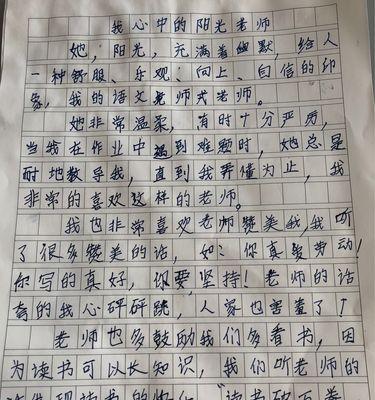 我心中的阳光老师
她，阳光，充满着幽默，给人
一种舒服、乐观、向上、自信的印
象，我的语文老师弍老师。
她非常温柔，有时十分严厉，
当我在作业中遇到难题时，她总是
耐地教导我，直到我弄懂为止，我
非常的喜欢这样的老师。
我也非常喜欢老师赞美我，我听
了很多赞美的话，如：你真爱劳动！
你写的真好，你要坚持！老师的话
夸的我心砰砰跳，人家也害羞了！
老师也多鼓励我们多看书，因
为读书可以长知识，我们听老师的
读书破万卷